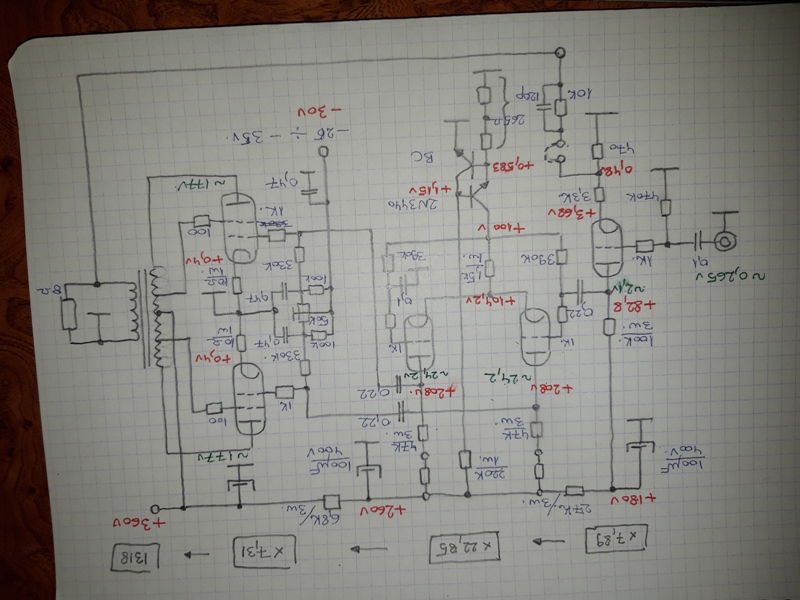 × 7,89
× 22,85
× 7,31
1318
+180V
27K/3w.
+260V
6,8K/3w.
+360V
100µF
400V.
47K
3w
220K
1w
47K
3w.
100µF
400V
~177V
+208V
0,22
+208V
0,22
100
~24,2
~24,2V
1K
+0,4V
100K
3w
+82,8
~2,1V
0,22
1K
1K
330K
0,47
100K
10Ω
1w
50K
+104,2V
0,1
390K
1,5K
1w
390K
100K
0,47
330K
10Ω
1w
+0,4V
8Ω
~0,265V
0,1
1K
+100V
1K.
100
470K
+3,62V
3,3K
2N3440
+1,15V
0,47
~177V
0,48V
470
+0,583
BC
-25 ÷ -35V.
-30V
10K
120p
265Ω